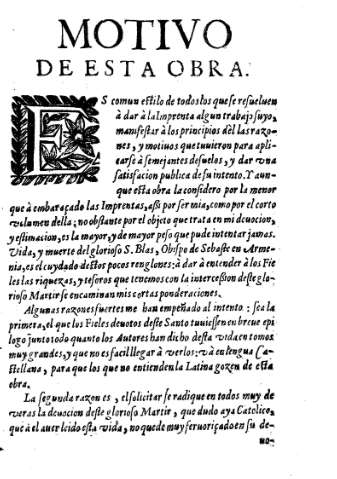 MOTIVO
DE ESTA OBRA.
ES comun estilo de todos los que se resueluen
à dar à la Imprenta algun trabajo suyo,
manifestar à los principios dèl las razo-
nes, y motiuos que tuuieron para apli-
carse à semejantes desuelos, y dar vna
satisfacion publica de su intento. Y aun-
que esta obra la considero por la menor
que à embaraçado las Imprentas, assi por ser mia, como por el corto
volumen della; no obstante por el objeto que trata en mi deuocion,
y estimacion, es la mayor, y de mayor peso que pude intentar jamas.
Vida, y muerte del glorioso S. Blas, Obispo de Sebaste en Arme-
nia, es el cuydado destos pocos renglones: à dar à entender à los Fie
les las riquezas, y tesoros que tenemos con la intercession deste glo-
rioso Martir se encaminan mis cortas ponderaciones.
Algunas razones fuertes me han empeñado al intento: sea la
primera, el que los Fieles deuotos deste Santo tuuiessen en breue epi
logo junto todo quanto los Autores han dicho desta vida en tomos
muy grandes, y que no es facil llegar à verlos: và en lengua Cas-
tellana, para que los que no entienden la Latina gozen de esta
obra.
La segunda razon es, el solicitar se radique en todos muy de
veras la deuocion deste glorioso Martir, que dudo aya Catolico,
que à el auer leido esta vida, no quede muy feruoriçado en su de-
uo-